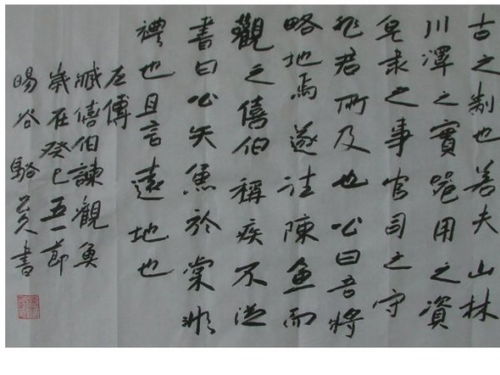 古之制也若夫山林
川澤之實器用之資
皂隸之事官司之守
非君所及也公曰吾將
略地焉遂往陳魚而
觀之僖伯稱疾不從
書曰公矢魚於棠非
禮也且言遠地也
左傳
臧僖伯諫觀魚
歲在癸巳五一節
暘谷駱書